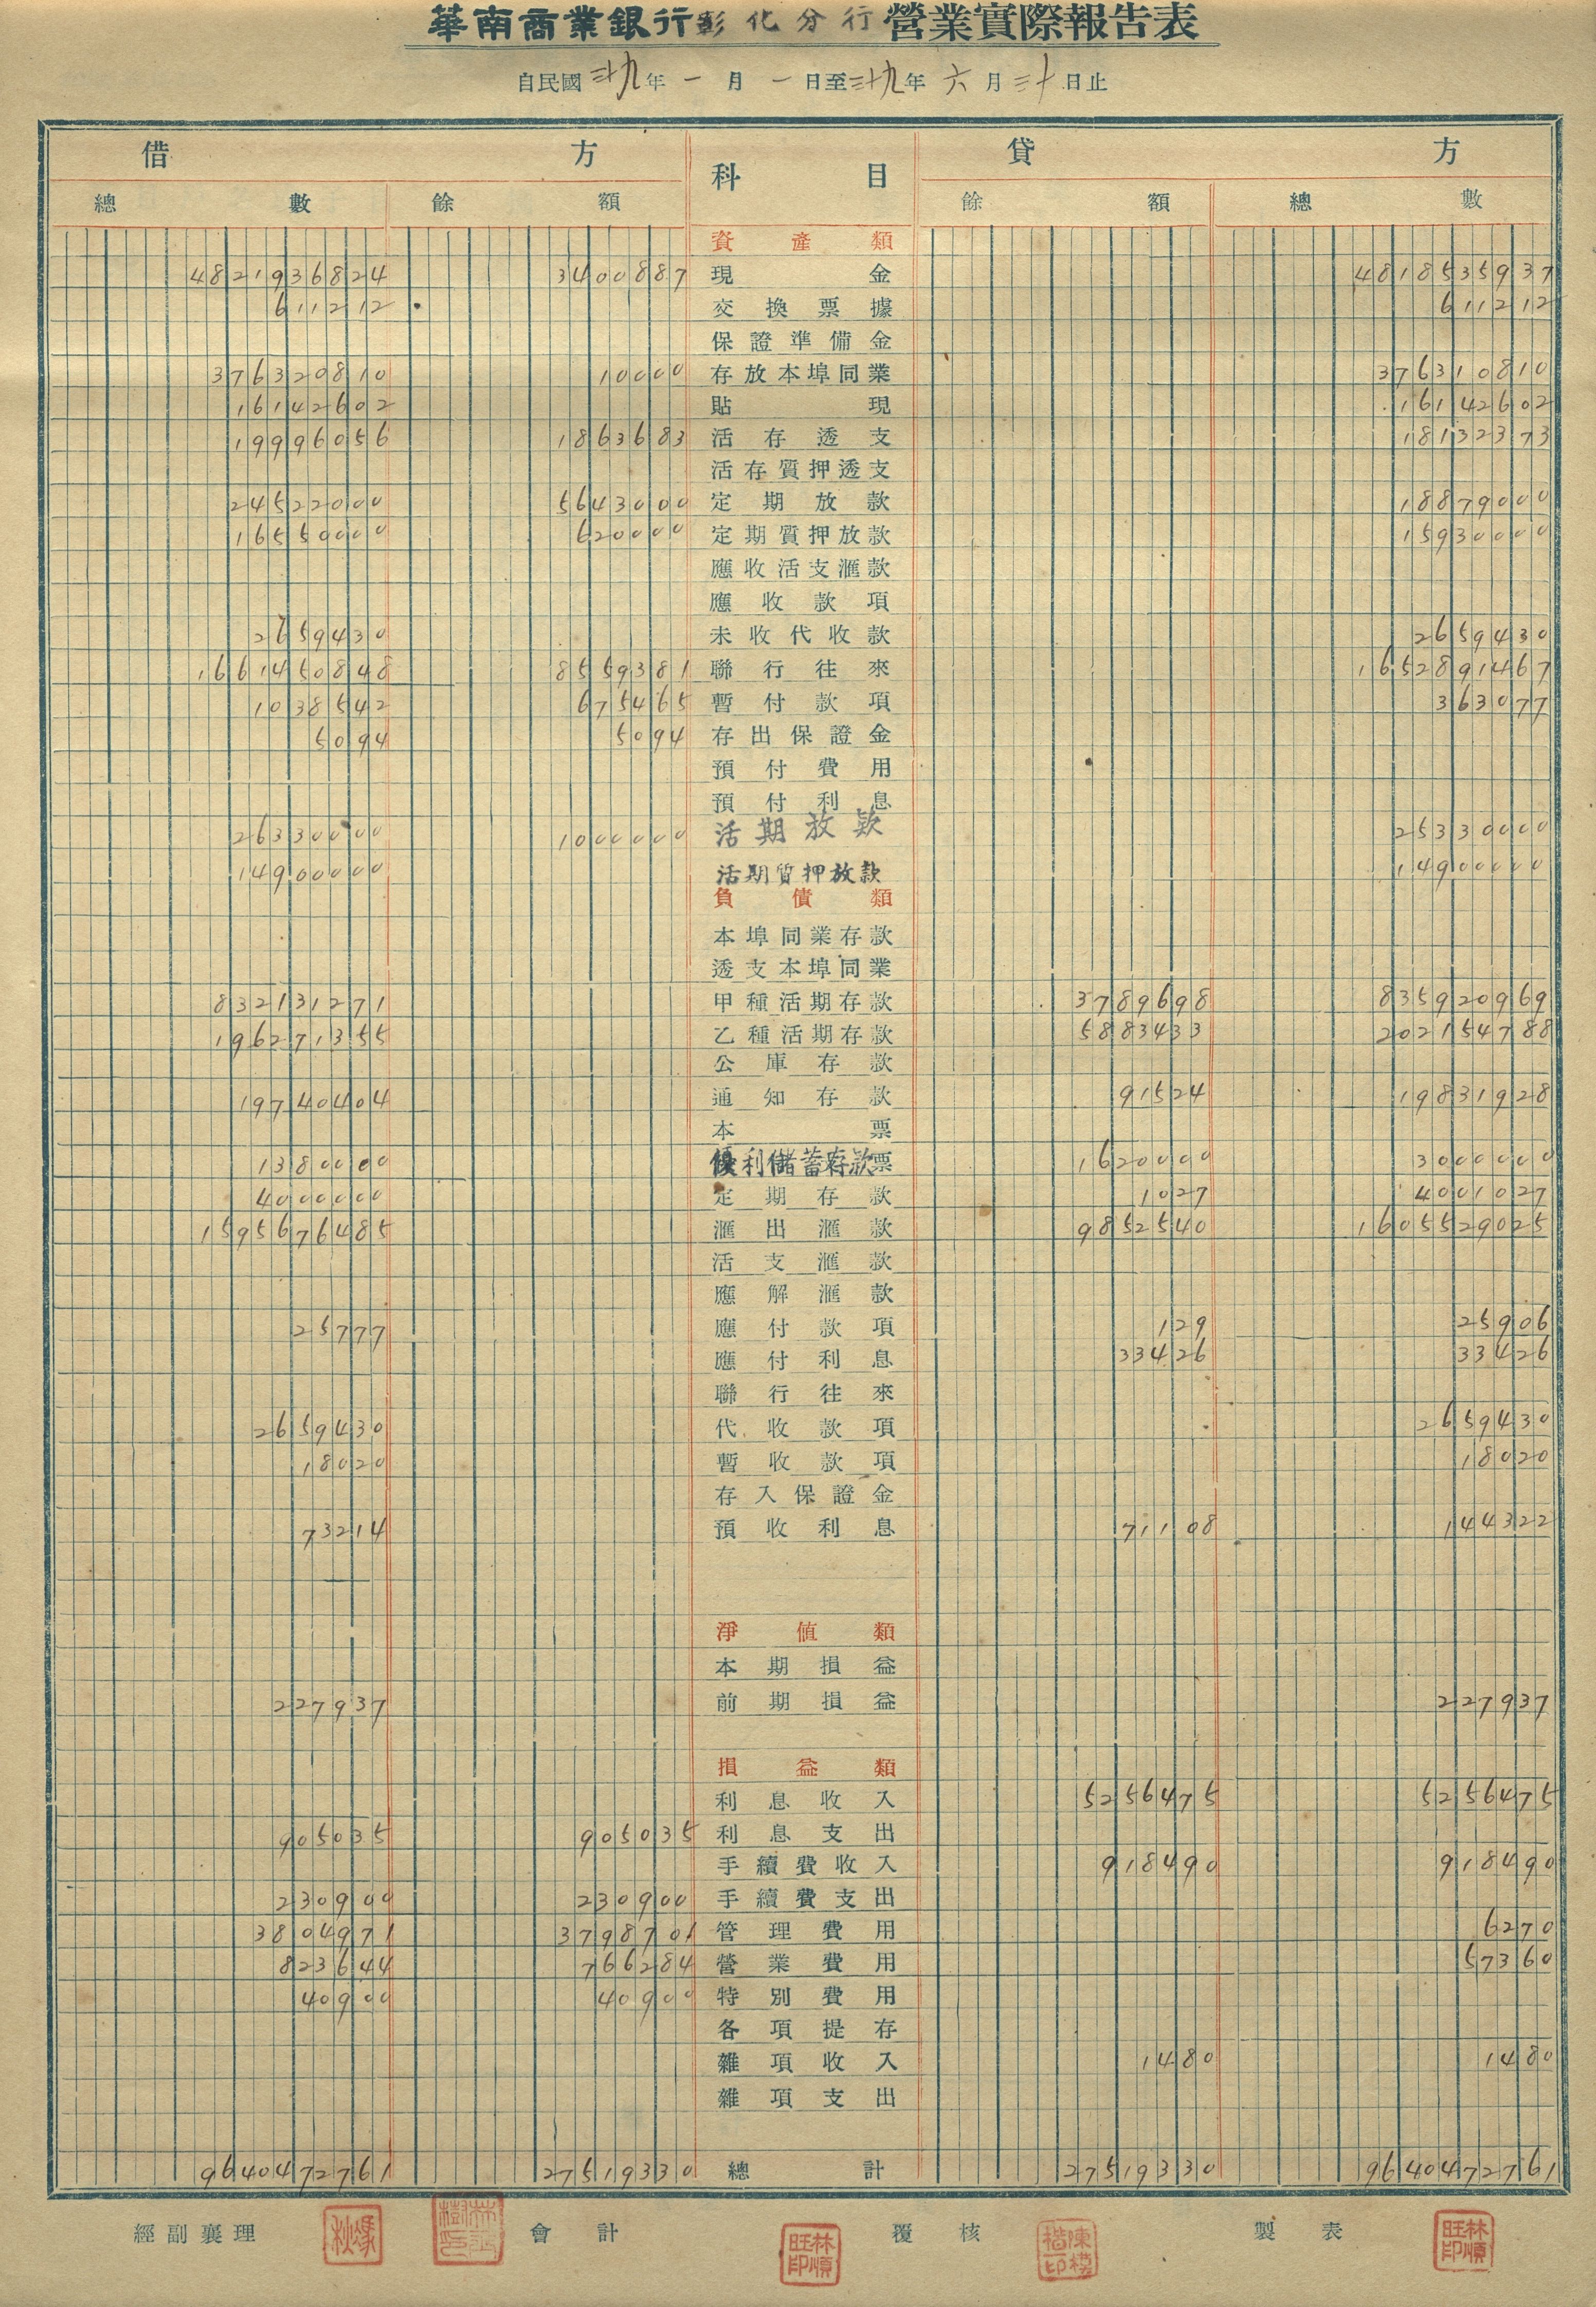 華南商業銀行彰化分行營業實際報告表
自民國三十九年一月一日至三十九年六月三十日止
借方 科目 貸方
總數 餘額 餘額 總數
資產類
4821936824 3400887 現金 4818535937
611212 交換票據 611212
保證準備金
376320810 10000 存放本埠同業 376310810
16142602 貼現 16142602
19996056 1863683 活存透支 18132373
活存質押透支
24522000 5643000 定期放款 18879000
16550000 620000 定期質押放款 15930000
應收活支滙款
應收款項
2659430 未收代收款 2659430
1661450848 8559381 聯行往來 1652891467
1038542 675465 暫付款項 363077
5094 5094 存出保證金
預付費用
預付利息
26330000 1000000 活期放款 25330000
14900000 活期質押放款 14900000
負債類
本埠同業存款
透支本埠同業
832131271 甲種活期存款 3789698 835920969
196271355 乙種活期存款 5883433 202154788
公庫存款
19740404 通知存款 91524 19831928
本票
1380000 優利儲蓄存款票 1620000 3000000
4000000 定期存款 1027 4001027
1595676485 滙出滙款 9852540 1605529025
活支滙款
應解滙款
25777 應付款項 129 25906
應付利息 33426 33426
聯行往來
2659430 代收款項 2659430
18020 暫收款項 18020
存入保證金
73214 預收利息 71108 144322
淨值類
本期損益
227937 前期損益 227937
損益類
利息收入 5256475 5256475
905035 905035 利息支出
手續費收入 918490 918490
230900 230900 手續費支出
3804971 3798701 管理費用 6270
823644 766284 營業費用 57360
40900 40900 特別費用
各項提存
雜項收入 1480 1480
雜項支出
9640472761 27519330 總計 27519330 9640472761
經副襄理 會計 覆核 林順旺印 製表 林順旺印